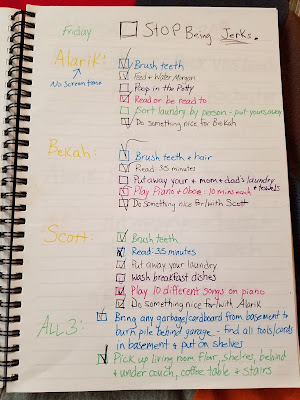 Friday
STOP Being Jerks.
Alarik:
No Screen time
Brush teeth
Feed + Water Morgan
Poop in the Potty
Read or be read to
Sort laundry by person - put yours away
Do something nice for Bekah
Bekah:
Brush teeth + hair
Read: 35 minutes
Put away your + mom + dad's laundry + towels
Play Piano + Oboe: 10 mins each
Do something nice for/with Scott
Scott:
Brush teeth
Read: 35 minutes
Put away your laundry
wash breakfast dishes
Play 10 different songs on piano
Do something nice for/with Alarik
ALL 3:
Bring any garbage/cardboard from basement to
burn pile behind garage - find all tools/cords
in basement + put on shelves
Pick up living room floor, shelves, behind
+ under couch, coffee table + stairs